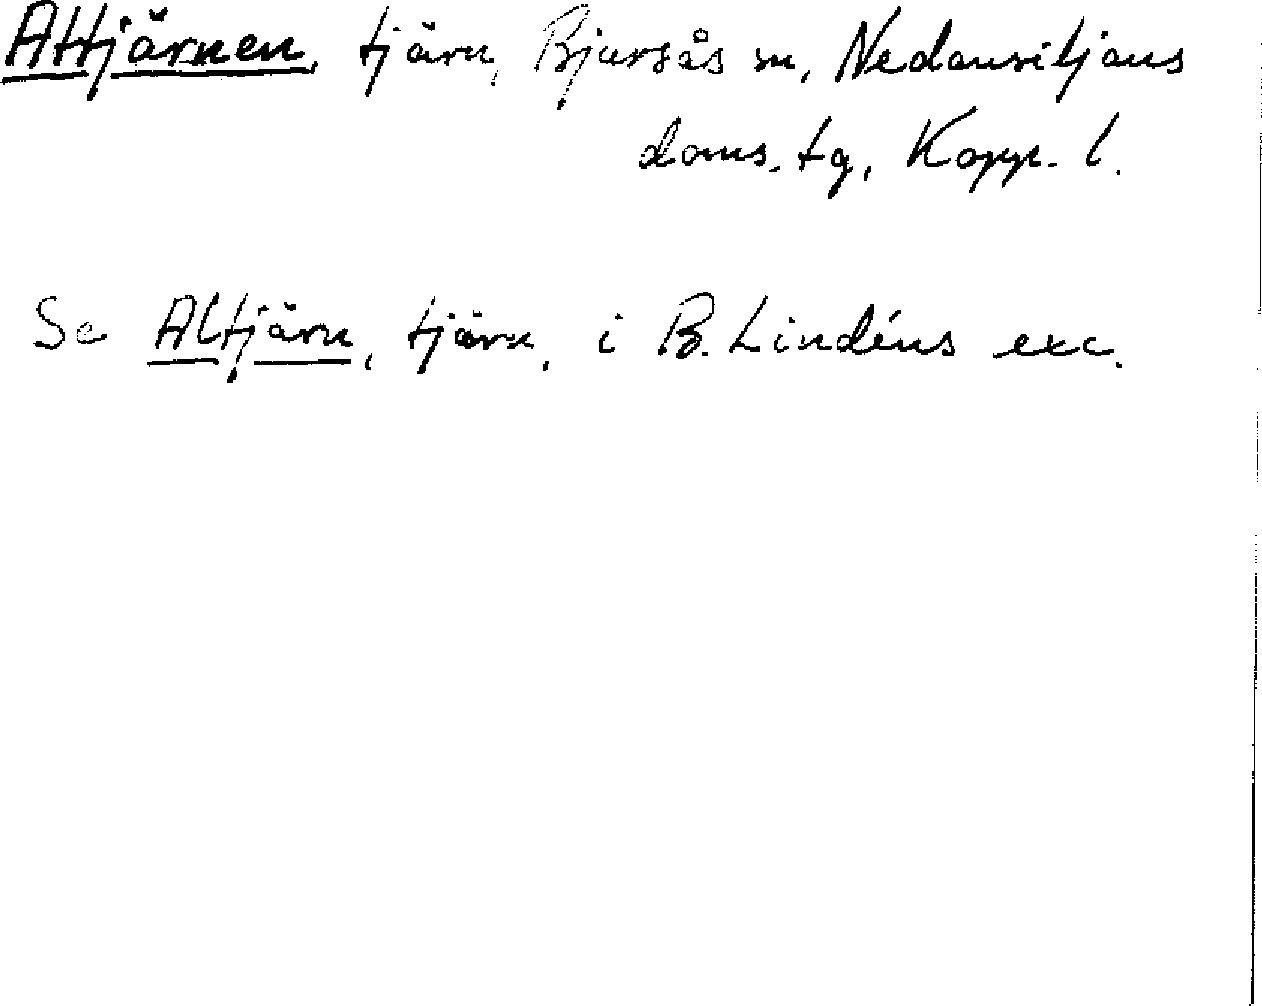 Attjärnen, tjärn, Bjursås sn, Nedansiljans
doms. tg, Kopp. l.
Se Altjärn, tjärn, i B. Lindéns exc.